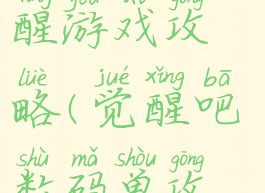 xǐng yóu xì gōng
醒游戏攻
lüè jué xǐng bā
略(觉醒吧
shù mǎ shòu gōng
数码兽攻